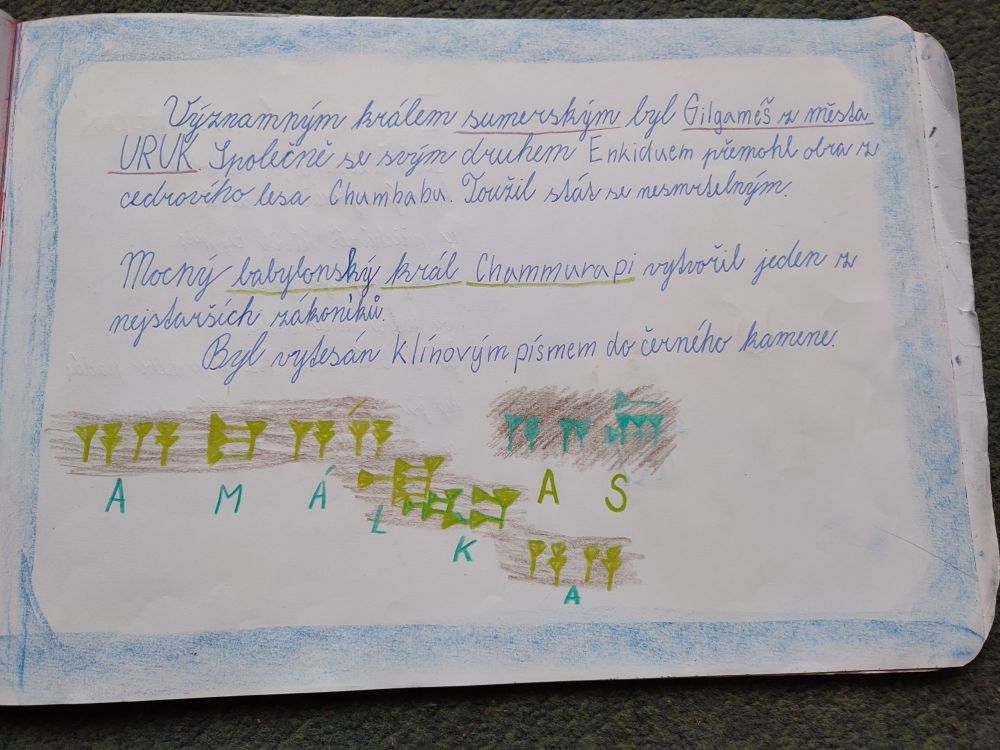 Významným králem sumerským byl Gilgaméš z města
URUK. Společně se svým druhem Enkiduem přemohl obra z
cedrového lesa Chumbabu. Toužil stát se nesmrtelným.
Mocný babylonský král Chammurapi vytvořil jeden z
nejstarších zákoníků.
Byl vytesán klínovým písmem do černého kamene.
A M Á L K A
A S